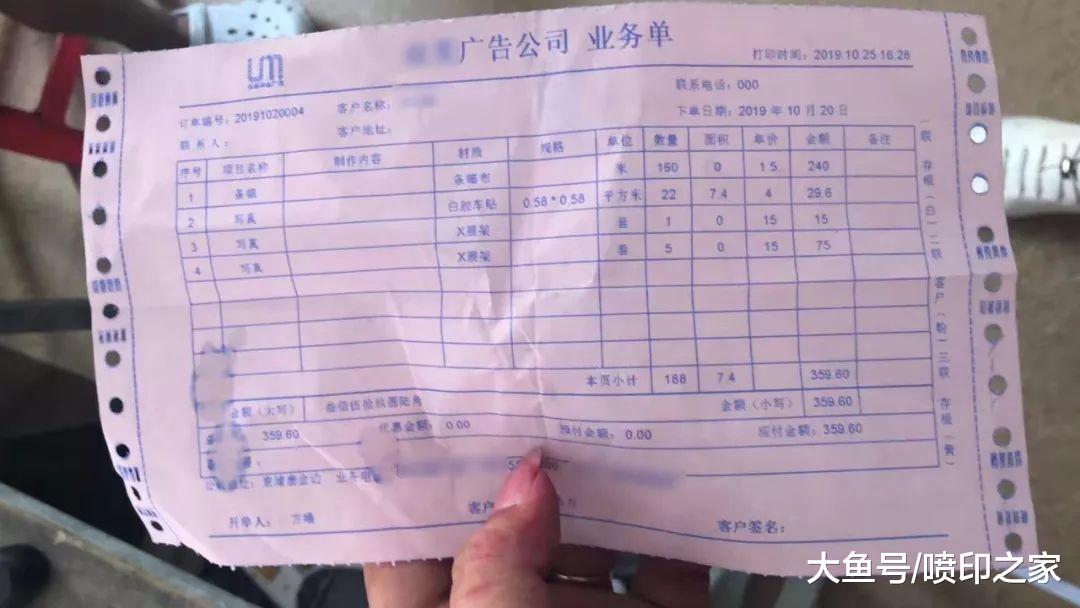 广告公司 业务单
打印时间：2019.10.25 16:28
订单编号：20191020004
客户名称：
联系电话：000
联系人：
客户地址：
下单日期：2019 年 10 月 20 日
序号 项目名称 制作内容 材质 规格 单位 数量 面积 单价 金额 备注
1 条幅 条幅布 米 160 0 1.5 240
2 写真 白胶车贴 0.58 * 0.58 平方米 22 7.4 4 29.6
3 写真 X展架 套 1 0 15 15
4 写真 X展架 套 5 0 15 75
本页小计 188 7.4 359.60
金额（大写） 叁佰伍拾玖圆陆角 金额（小写） 359.60
359.60 优惠金额：0.00 预付金额：0.00 应付金额：359.60
业务电
开单人： 方曦 客户 客户签名：
一联 存根（白）二联 客户（粉）三联 存根（黄）
大鱼号/喷印之家